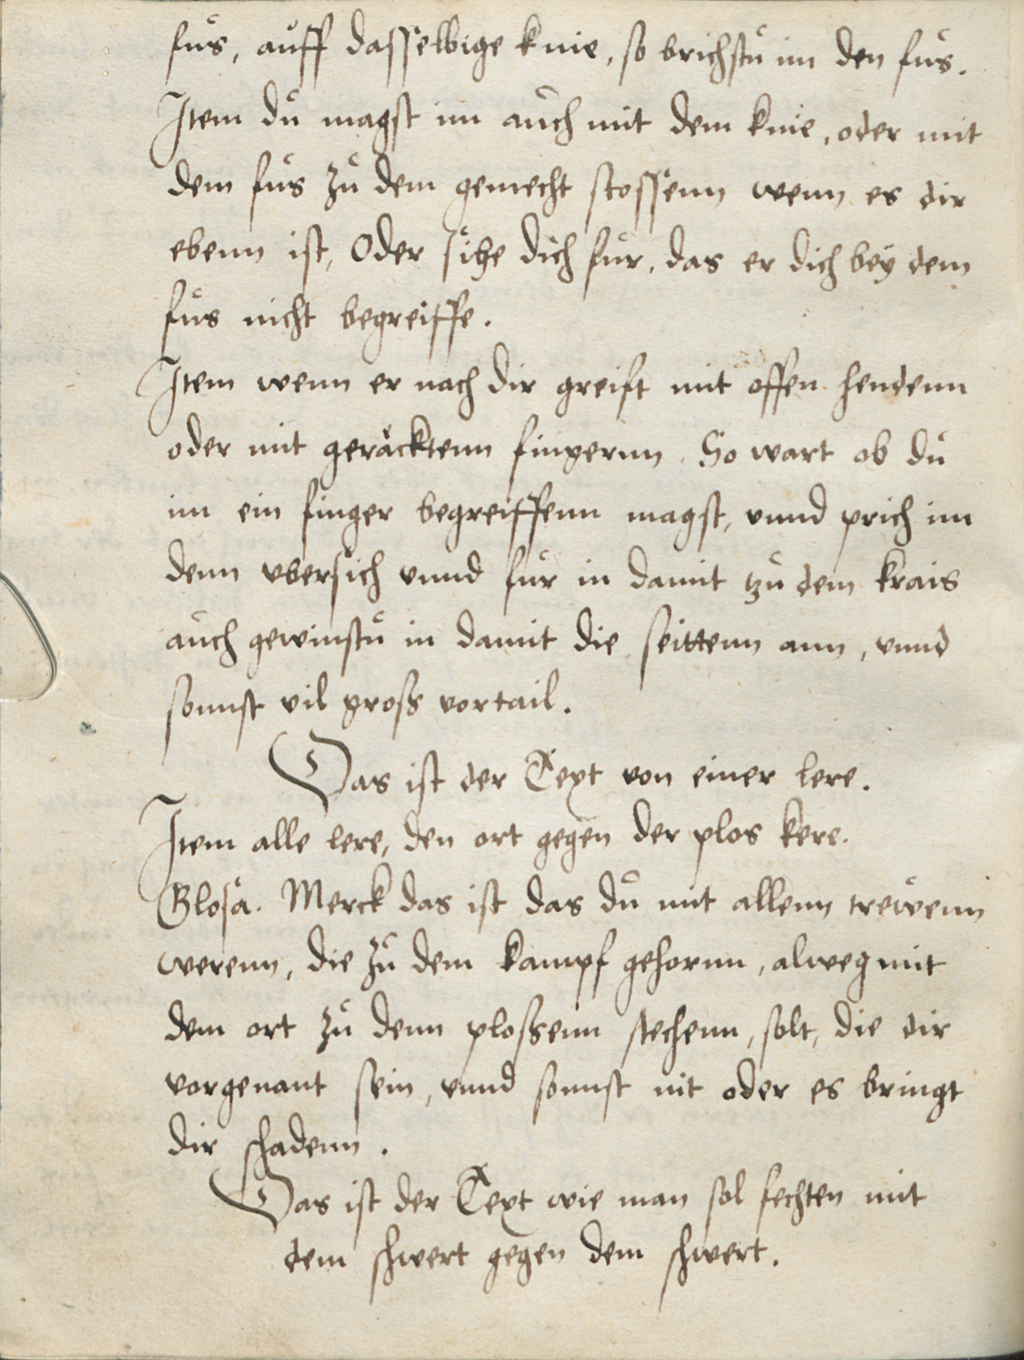 fůs, auff dasselbige knie, so brichstů im den fůs.
Item dů magst im auch mit dem knie, oder mit
dem fůs zů dem gemecht stossenn wenn es dir
ebenn ist, Oder sihe dich fůr, das er dich bey dem
fůs nicht begreiffe.
Item wenn er nach dir greift mit offen hendenn
oder mit geräcktenn fingernn. So wart ob dů
im ein finger begreiffenn magst, vnnd prich im
denn vbersich vnnd fůr in damit zů dem krais
auch gewinstů in damit die seittenn ann, vnnd
sonnst vil gross vortail.
Das ist der Text von einer lere.
Item alle lere, den ort gegen der plos kere.
Glosa. Merck das ist das dů mit allenn trewenn
werenn, die zů dem kampf gehornn, alweg mit
dem ort zů denn plossenn stechenn, solt, die dir
vorgenant sein, vnnd sonnst nit oder es bringt
dir schadenn.
Das ist der Text wie man sol fechten mit
dem schwert gegen dem schwert.